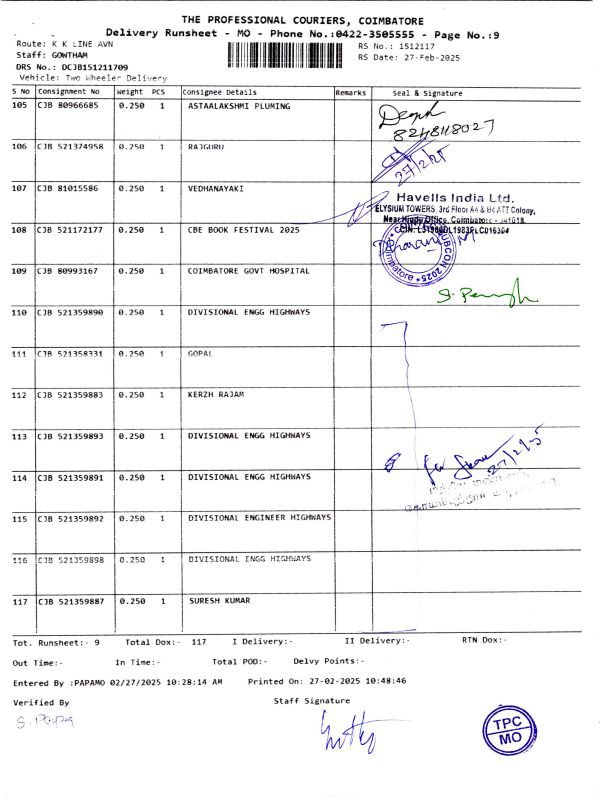 THE PROFESSIONAL COURIERS, COIMBATORE
Delivery Runsheet - MO - Phone No.:0422-3505555 - Page No.:9
Route: K K LINE AVN
RS No.: 1512117
Staff: GOWTHAM
RS Date: 27-Feb-2025
DRS No.: DCJB151211709
Vehicle: Two Wheeler Delivery
S No Consignment No Weight PCS Consignee Details Remarks Seal & Signature
105 CJB 80966685 0.250 1 ASTAALAKSHMI PLUMING
8248118027
106 CJB 521374958 0.250 1 RAJGURU
27/2/25
107 CJB 81015586 0.250 1 VEDHANAYAKI
Havells India Ltd.
ELYSIUM TOWERS, 3rd Floor A4 & B4 ATT Colony,
Near Hindu Office, Coimbatore - 641018.
108 CJB 521172177 0.250 1 CBE BOOK FESTIVAL 2025
109 CJB 80993167 0.250 1 COIMBATORE GOVT HOSPITAL
110 CJB 521359890 0.250 1 DIVISIONAL ENGG HIGHWAYS
111 CJB 521358331 0.250 1 GOPAL
112 CJB 521359883 0.250 1 KERZH RAJAM
113 CJB 521359893 0.250 1 DIVISIONAL ENGG HIGHWAYS
27/2/25
114 CJB 521359891 0.250 1 DIVISIONAL ENGG HIGHWAYS
115 CJB 521359892 0.250 1 DIVISIONAL ENGINEER HIGHWAYS
116 CJB 521359898 0.250 1 DIVISIONAL ENGG HIGHWAYS
117 CJB 521359887 0.250 1 SURESH KUMAR
Tot. Runsheet:- 9 Total Dox:- 117 I Delivery:- II Delivery:- RTN Dox:-
Out Time:- In Time:- Total POD:- Delvy Points:-
Entered By :PAPAMO 02/27/2025 10:28:14 AM Printed On: 27-02-2025 10:48:46
Verified By Staff Signature
S. Papa
TPC
MO